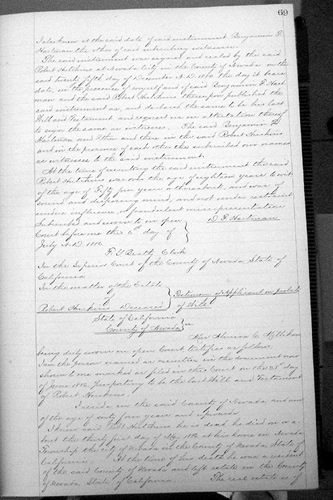 69
I also knew at the said date of said instrument Benjamin F.
Hartman the other of said subscribing witnesses.
The said instrument was signed and sealed by the said
Robert Hutchins at Nevada City in the County of Nevada on the
said twenty fifth day of December A.D. the day it bears
date, in the presence of myself and of said Benjamin F. Hart-
man and the said Robert Hutchins thereupon published the
said instrument as, and declared the same to be his last
Will and Testament and requested us in attestation thereof
to sign the same as witnesses. The said Benjamin F.
Hartman and I then and there in the of said Robert Hutchins
and in the presence of each other subscribed our names
as witnesses to the said instrument.
At the time of executing the said instrument the said
Robert Hutchins was over the age of eighteen years to wit
of the age of Fifty five years or thereabout, and was of
sound and disposing mind, and not under restraint
undue influence, or fraudulent misrepresentation.
Subscribed and sworn to in open
Court before me this day of
July A.D. 1886
Clerk
In the Superior Court of the County of Nevada State of
California
In the matter of the Estate
of
Robert Hutchins Deceased
Testimony of Applicant on probate
of Will
State of California
County of Nevada
ss
being duly sworn in open Court testifies as follows:
I am the person named as executrix in the instrument now
shown to me marked as filed in this Court on the day
of June 1886 Purporting to be the last Will and Testament
of Robert Hutchins.
I reside in the said County of Nevada and am
of the age of forty four years and upwards
I knew said Hutchins he is dead he died on or a-
bout the thirty first day of May 1886 at his home in Nevada
Township in the County of Nevada State of
California. At the time of his death he was a resident
of the said County of Nevada and left estate in the County
of Nevada State of California. The real estate is of